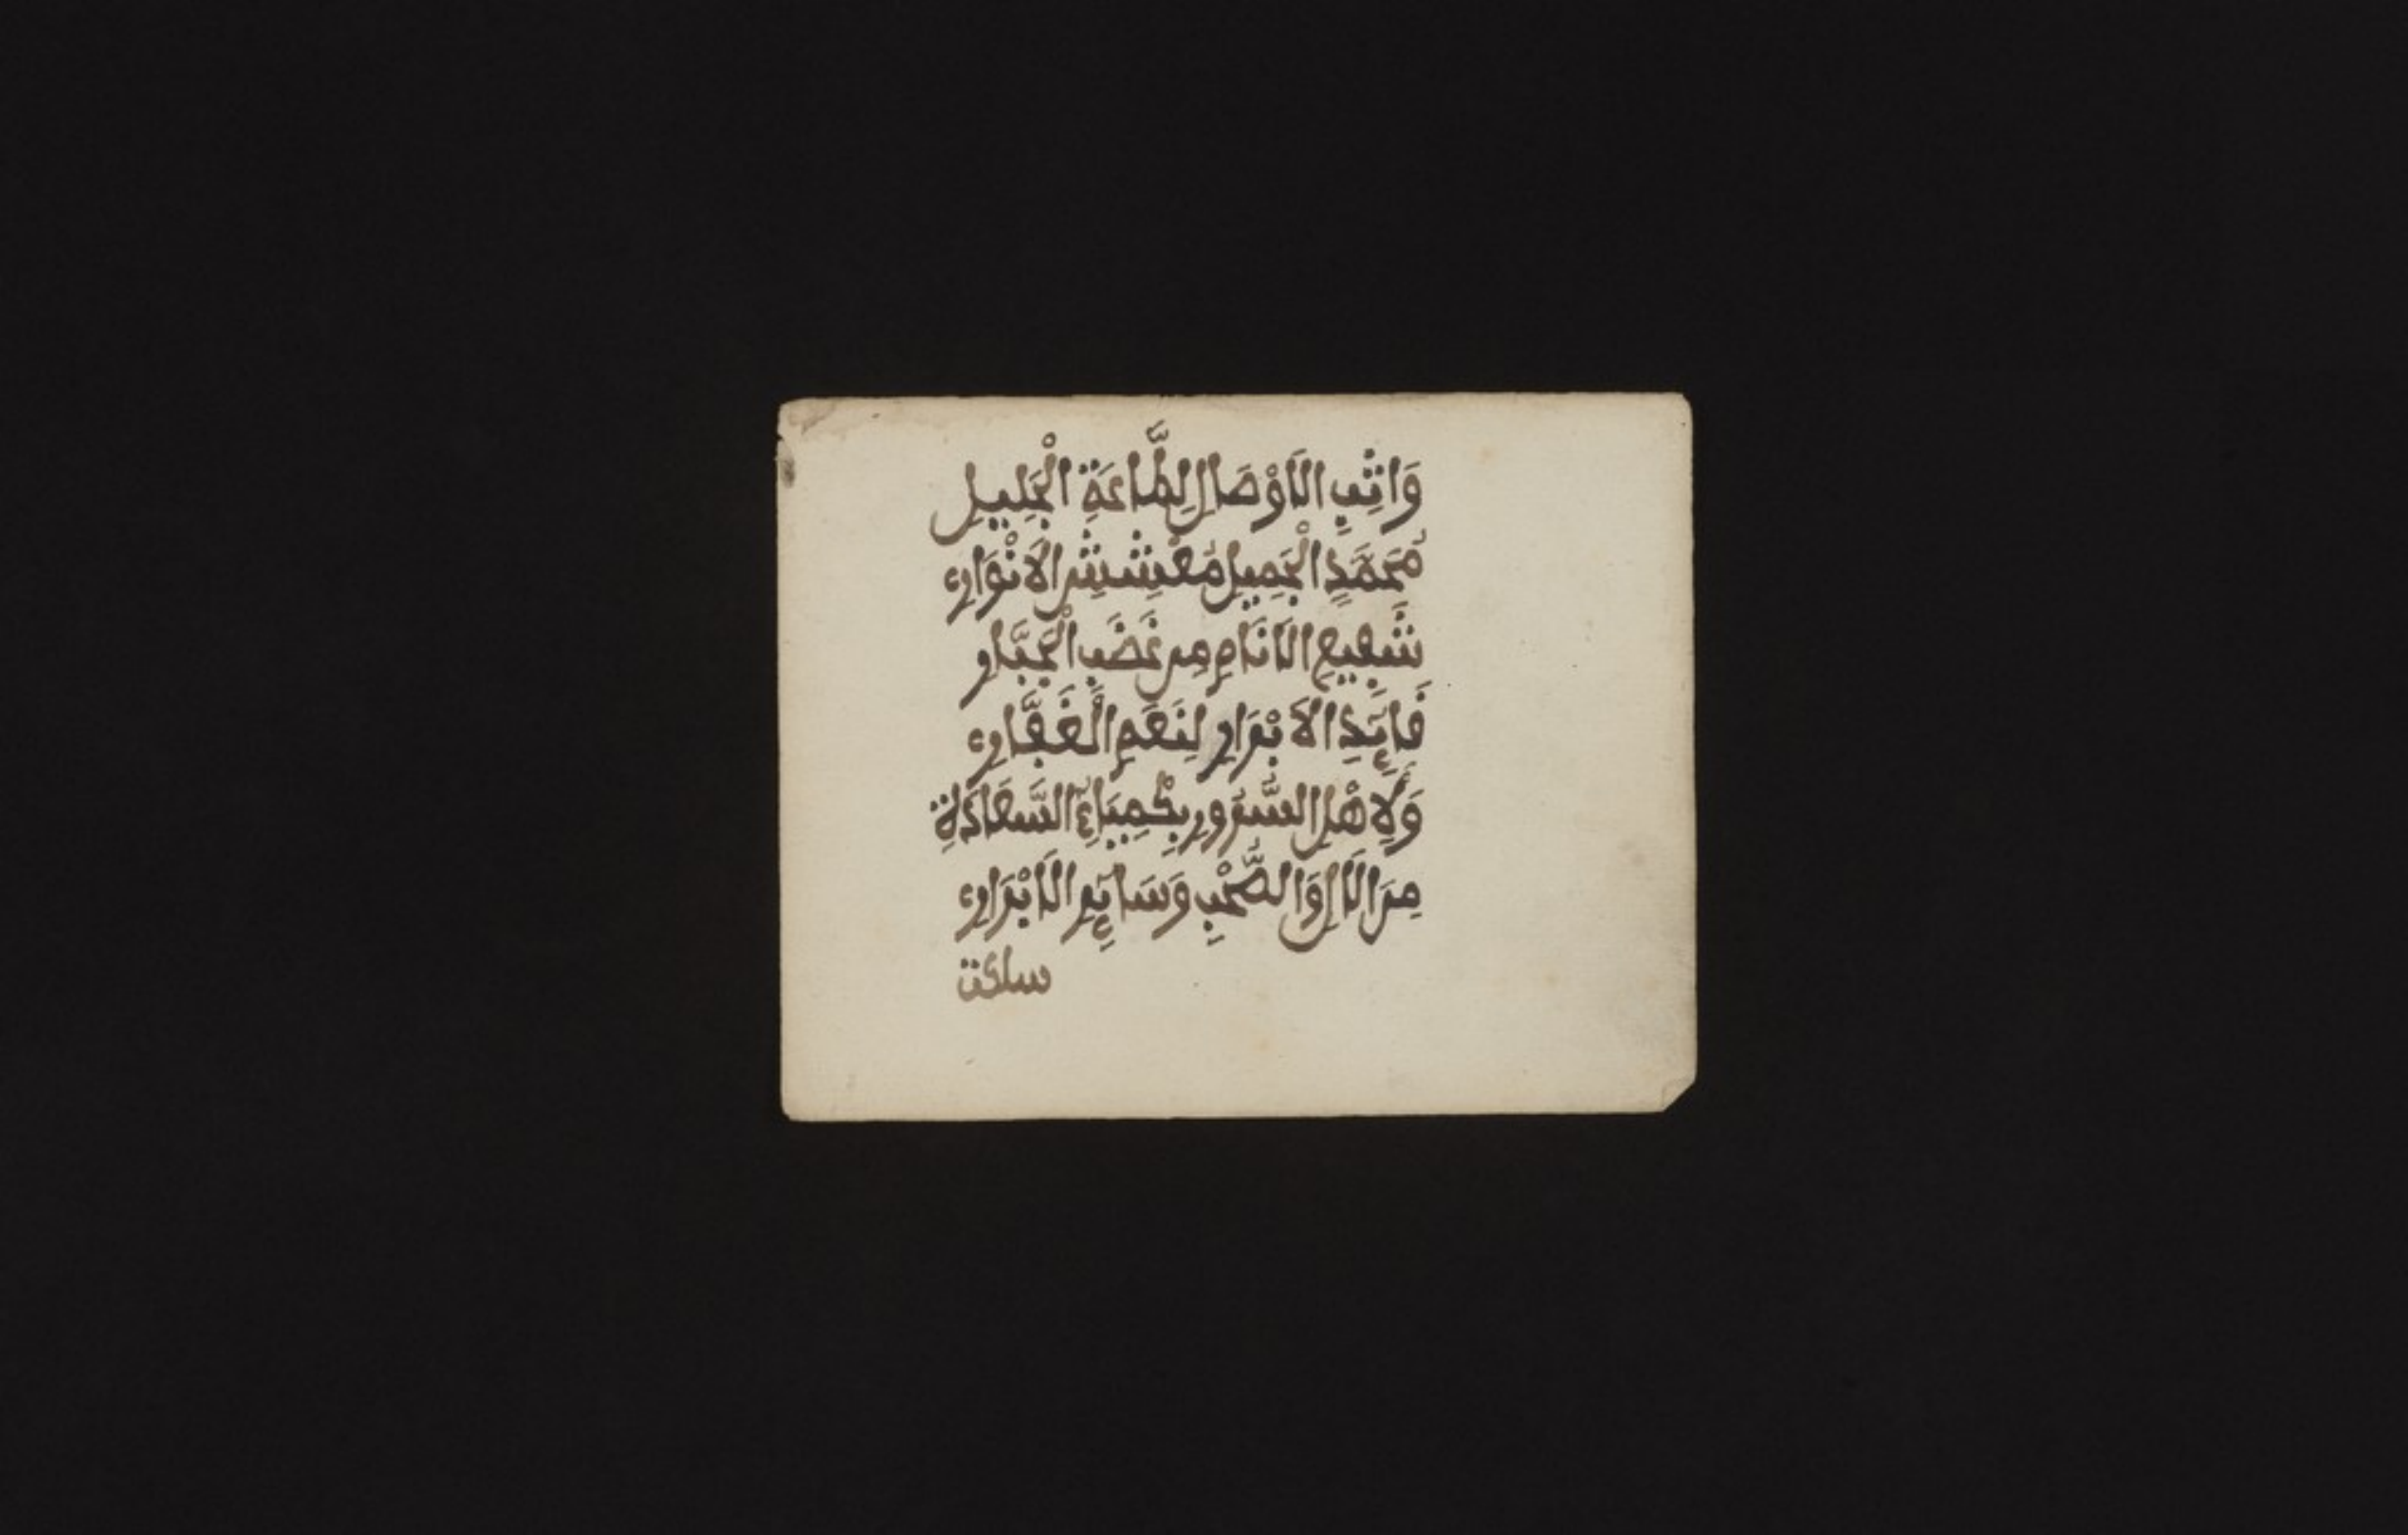 وَاثِبِ الَاوْصَالِ لِطَّاعَةِ الْجَلِيلِ
مُحَمَّدٍ الْجَمِيلِ مُعْشِشِ الَانْوَارِ
شَفِيعِ الَانَامِ مِن غَضَبِ الْجَبَّارِ
فَائِدِ الَابْرَارِ لِنَعَمِ الْغَفَّارِ
وَلِأَهْلِ السُّرُورِ بِكْمِيَاءِ السَّعَادَةِ
مِنَ الَالِ وَالصُّحْبِ وَسَائِرِ الَابْرَارِ